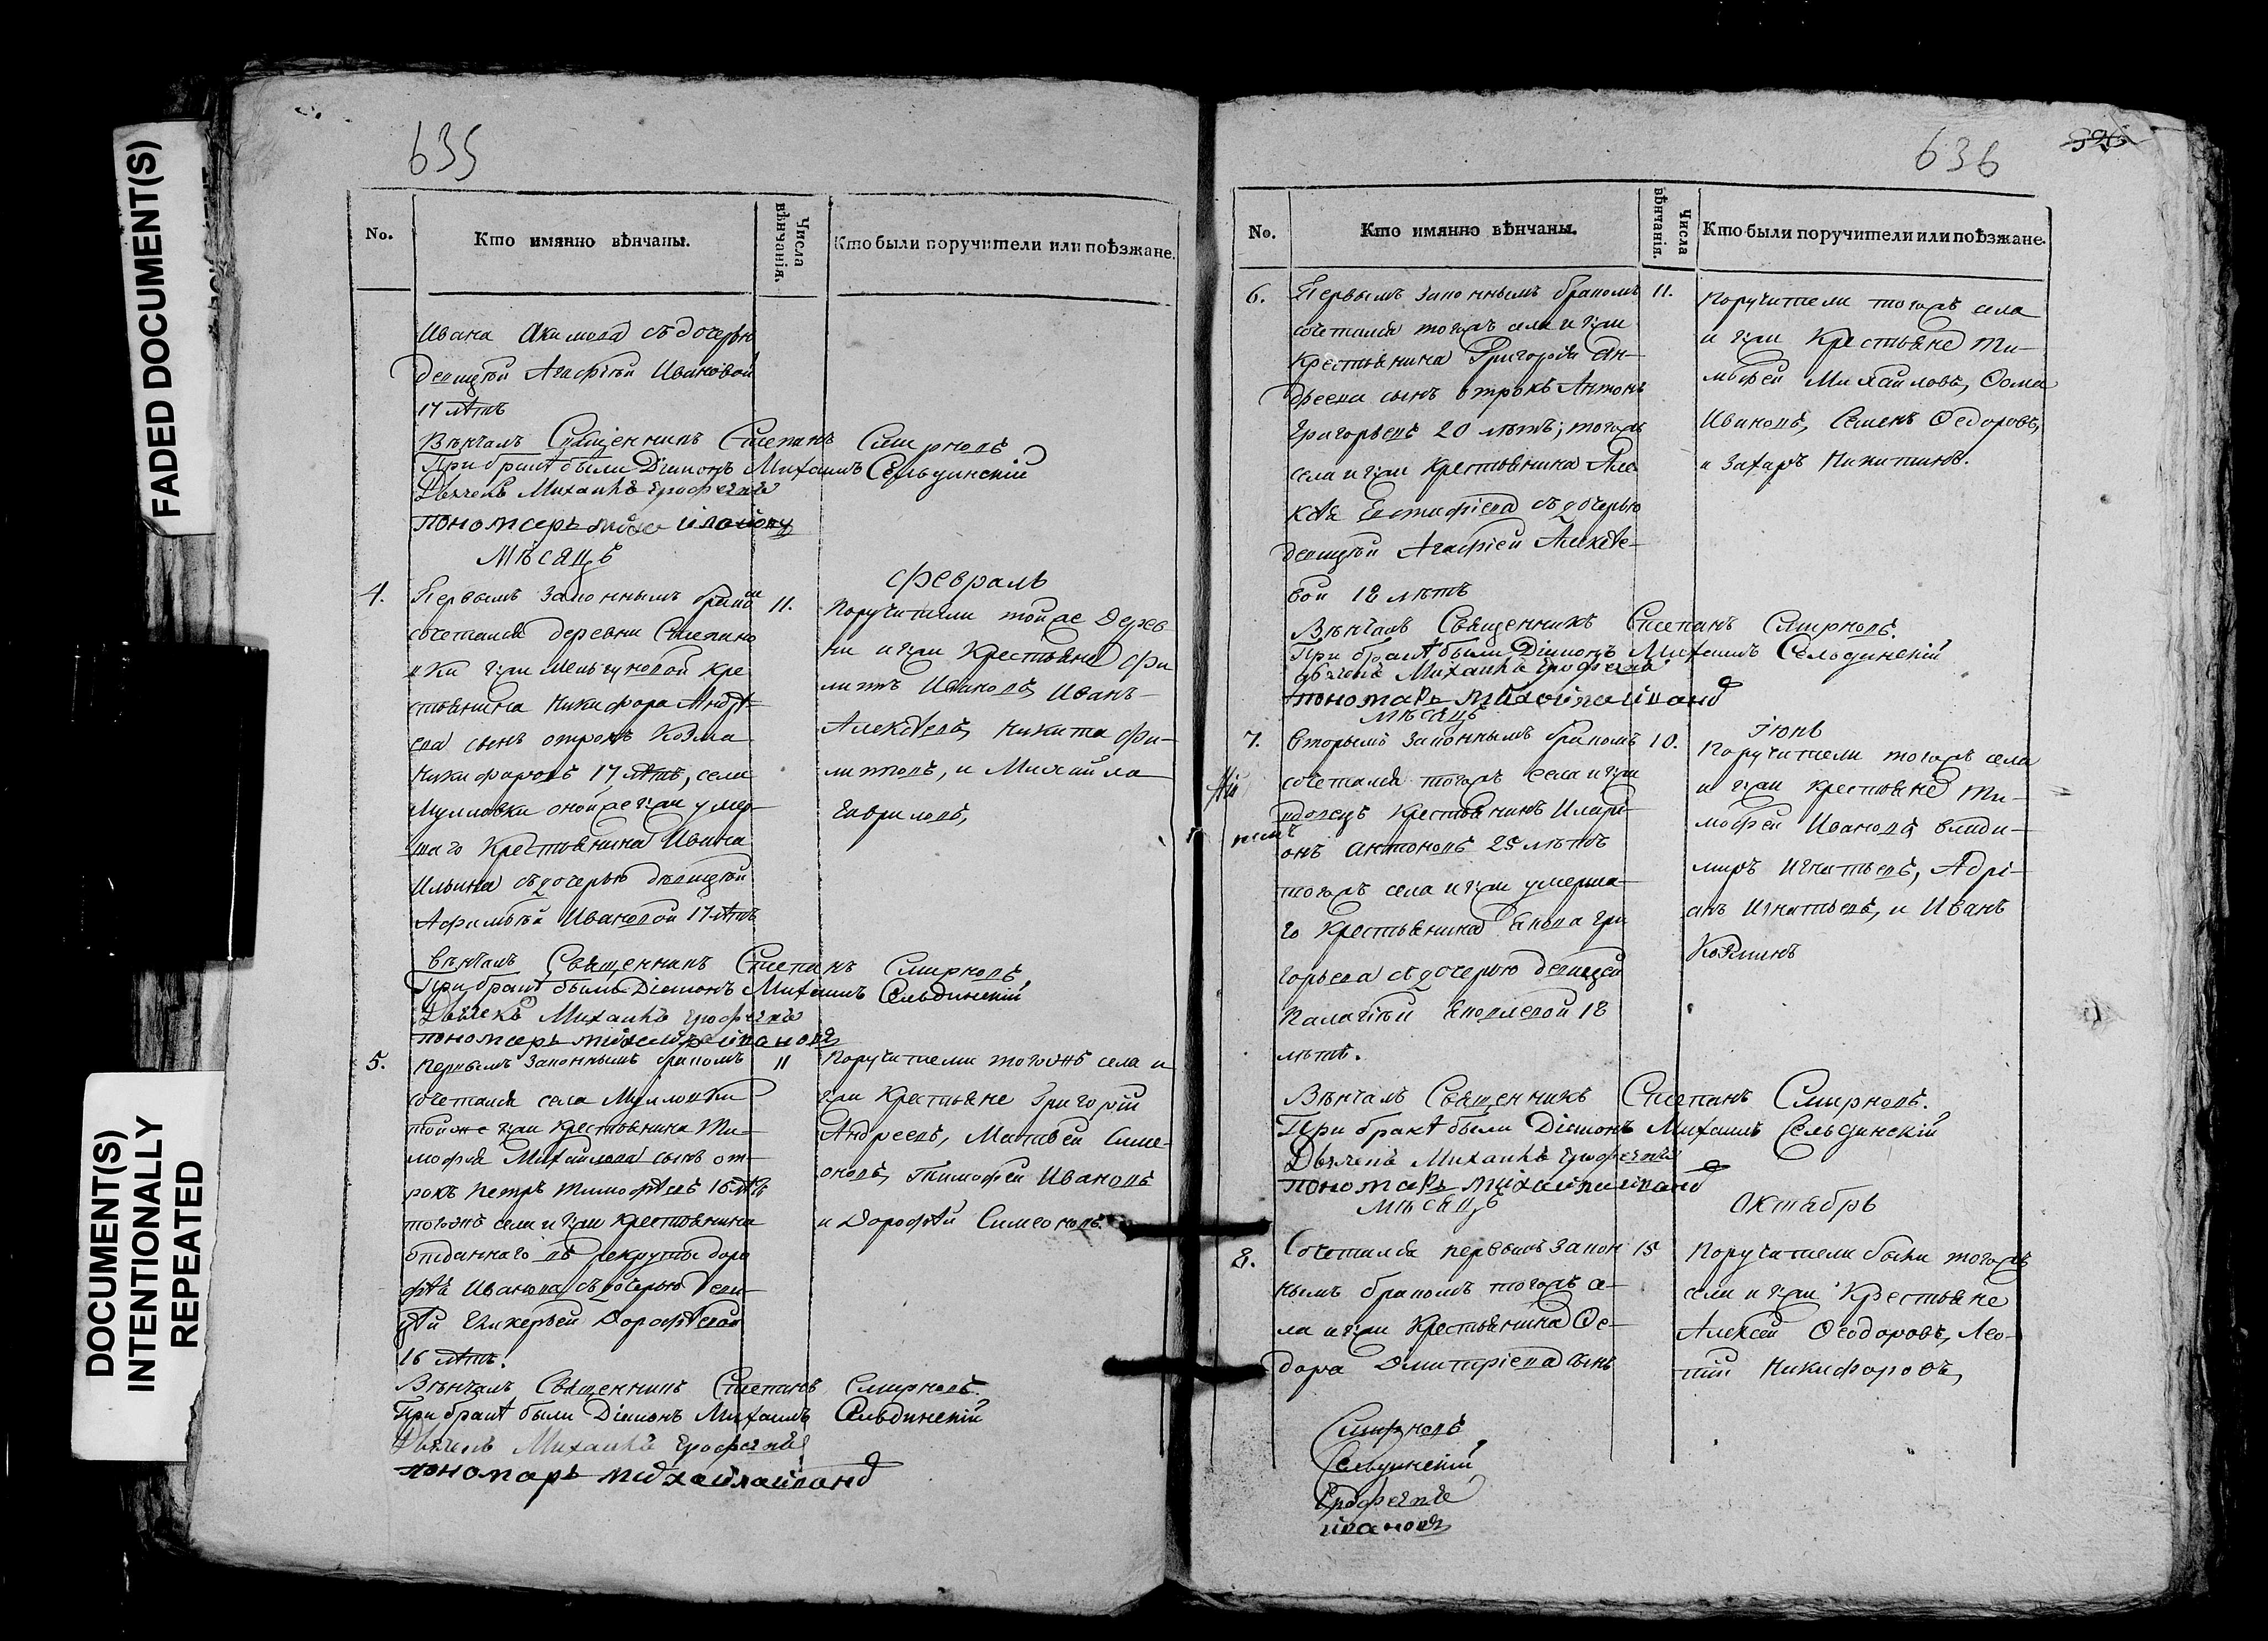 FADED DOCUMENT(S)
DOCUMENT(S)
INTENTIONALLY
REPEATED
635
No.
Кто имянно вѣнчаны.
Числа вѣнчанія.
Кто были поручители или поѣзжане.
Ивана Акимова съ дочерью
девицѣй Агафіѣй Ивановой
17 лѣтъ
Вѣнчалъ Священникъ Степанъ Смирновъ
При бракѣ были Діаконъ Михаилъ Сельдинскій
Дьячекъ Михаилъ Ерофеевъ
пономарь
Мѣсяцъ
февраль
4.
Первымъ законнымъ бракомъ
сочетался деревни Степано
вки г҃жи Мельгуновой кре
стьянина Никифора Андрѣ-
ева сынъ отрокъ Козма
Никифоровъ 17 лѣтъ, села
Мулловки оной же г҃жи умер-
шаго Крестьянина Ивана
Ильина съ дочерью дѣвицѣй
Афимьѣй Ивановой 17 лѣтъ
11.
Поручители той же Дерев
ни и г҃жи Крестьяне Фи
липъ Ивановъ, Иванъ
Алексѣевъ, Никита Фи-
липовъ, и Михайла
Гавриловъ,
вѣнчалъ Священникъ Степанъ Смирновъ
При бракѣ былъ Діаконъ Михаилъ Сельдинскій
Дьячекъ Михаилъ Ерофеевъ
пономарь михайла иванов
5.
Первымъ законнымъ бракомъ
сочетался села Мулловки
той же г҃жи крестьянина Ти-
мофея Михайлова сынъ от-
рокъ Петръ Тимофѣевъ 16 лѣтъ
тогожъ села и г҃жи крестьянина
отданнаго въ рекруты Доро
фѣя Иванова съ дочерью деви-
цѣй Гликерьей Дорофѣевой
16 лѣтъ.
11
Поручители тогожъ села и
г҃жи Крестьяне Григорій
Андреевъ, Матвѣй Симе-
оновъ, Тимофей Ивановъ
и Дорофѣй Симеоновъ.
Вѣнчалъ Священникъ Степанъ Смирновъ.
При бракѣ были Діаконъ Михаилъ Сельдинскій
Дьячекъ Михаилъ Ерофеевъ
пономарь михайла иванов
636
No.
Кто имянно вѣнчаны.
Числа вѣнчанія.
Кто были поручители или поѣзжане.
6.
Первымъ законнымъ бракомъ
сочетался тогожъ села и г҃жи
крестьянина Григорья Ан-
дреева сынъ отрокъ Антонъ
Григорьевъ 20 лѣтъ; тогожъ
села и г҃жи крестьянина Але
ксѣя Евстифіева съ дочерью
девицѣй Агафіей Алексѣе-
вой 18 лѣтъ
11.
Поручители тогожъ села
и г҃жи Крестьяне Ти-
мофей Михайловъ, Ѳома
Ивановъ, Семенъ Ѳедоровъ,
и Захаръ Никитинъ.
Вѣнчалъ Священникъ Степанъ Смирновъ.
При бракѣ были Діаконъ Михаилъ Сельдинскій
дьячекъ Михаилъ Ерофеевъ
пономарь михайла иванов
Мѣсяцъ
іюнь
7.
Вторымъ законнымъ бракомъ
сочетался тогожъ села и г҃жи
вдовецъ крестьянинъ Иларі-
онъ Антоновъ 25 лѣтъ
тогожъ села и г҃жи умерша-
го Крестьянина Якова Гри
горьева съ дочерью девицей
Палагѣей Яковлевой 18
лѣтъ.
10.
Поручители тогожъ села
и г҃жи крестьяне Ти-
мофей Ивановъ, Влади-
миръ Игнатьевъ, Адрі-
анъ Игнатьевъ, и Иванъ
Козминъ
Вѣнчалъ Священникъ Степанъ Смирновъ.
При бракѣ были Діаконъ Михаилъ Сельдинскій
Дьячекъ Михаилъ Ерофеевъ
пономарь михайла иванов
Мѣсяцъ
Октябрь
8.
Сочетался первымъ закон
нымъ бракомъ тогожъ се-
ла и г҃жи Крестьянина Ѳе-
дора Дмитріева сынъ
15
Поручители были тогожъ
села и г҃жи Крестьяне
Алексей Ѳеодоровъ, Лео-
нтій Никифоровъ,
Смирновъ
Сельдинскій
Ерофеевъ
иванов